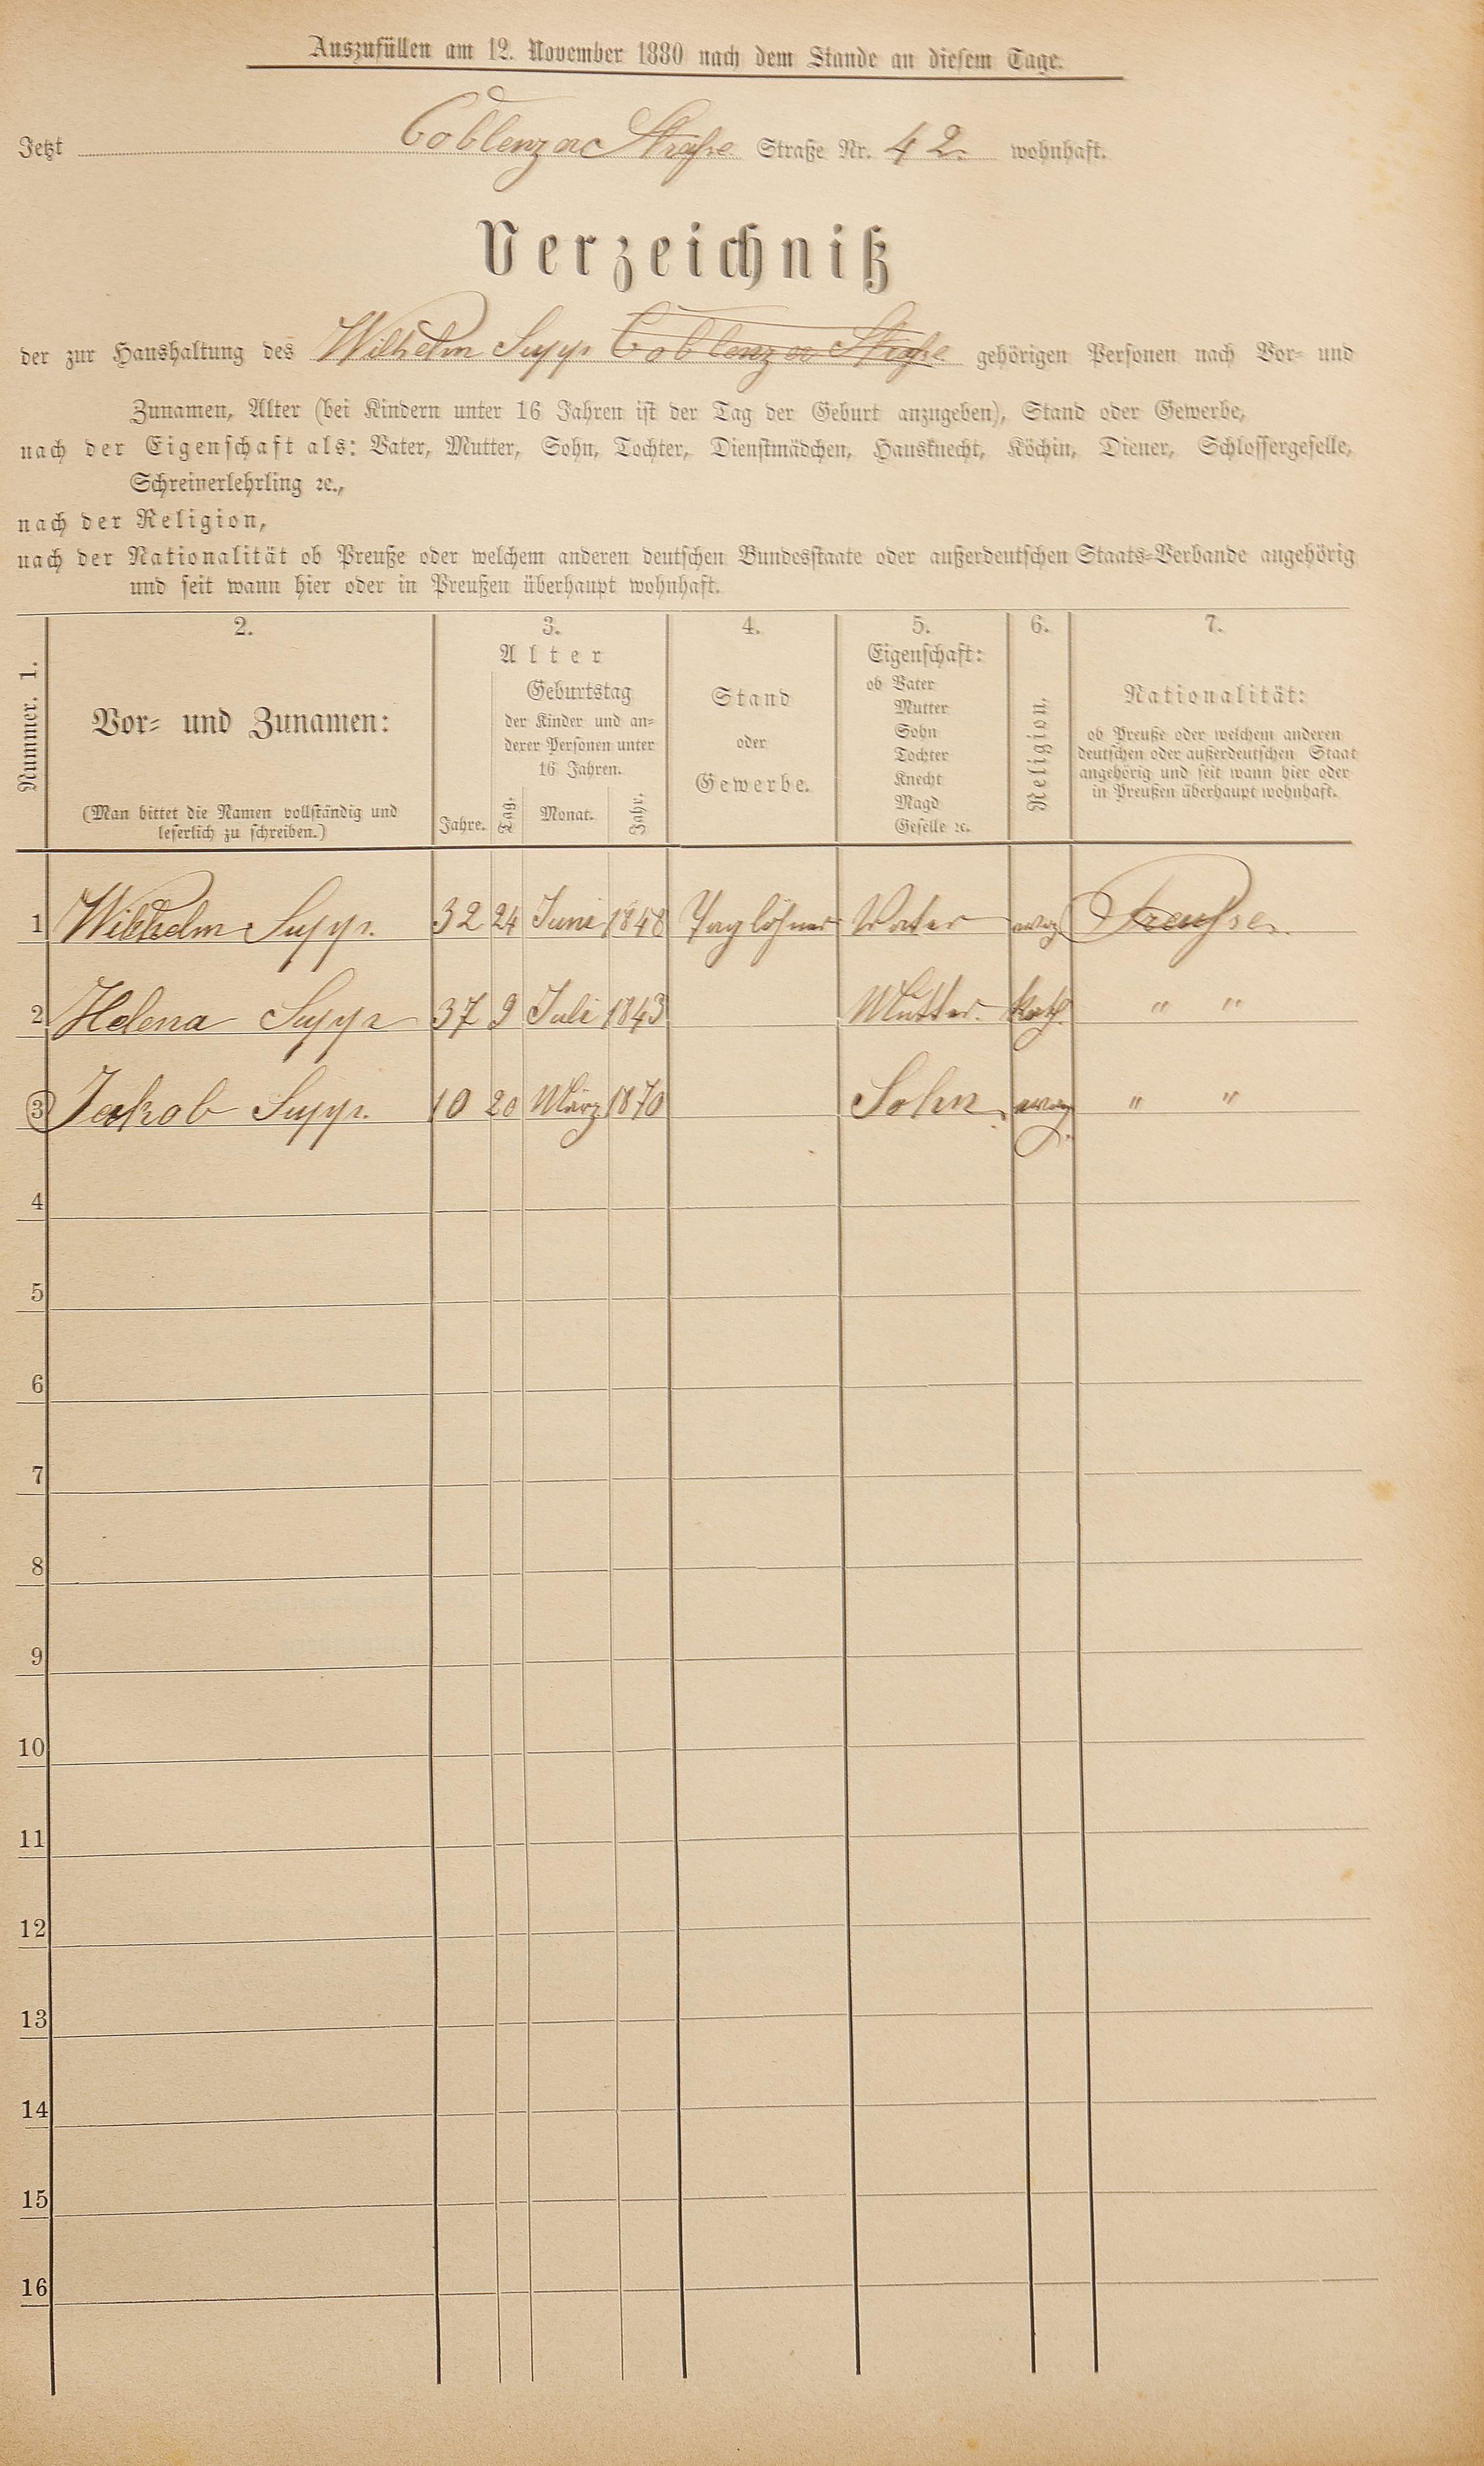 Auszufüllen am 12. November 1880 nach dem Stande an diesem Tage.
Jetzt Coblenzer Straße Straße Nr. 42. wohnhaft.
Verzeichniß
der zur Haushaltung des Wilhelm Supp Coblenzer Straße gehörigen Personen nach Vor- und
Zunamen, Alter (bei Kindern unter 16 Jahren ist der Tag der Geburt anzugeben), Stand oder Gewerbe,
nach der Eigenschaft als: Vater, Mutter, Sohn, Tochter, Dienstmädchen, Hausknecht, Köchin, Diener, Schlossergeselle,
Schreinerlehrling ꝛc.,
nach der Religion,
nach der Nationalität ob Preuße oder welchem anderen deutschen Bundesstaate oder außerdeutschen Staats-Verbande angehörig
und seit wann hier oder in Preußen überhaupt wohnhaft.
Nummer. 1.
2.
Vor- und Zunamen:
(Man bittet die Namen vollständig und
leserlich zu schreiben.)
3.
Alter
Geburtstag
der Kinder und an-
derer Personen unter
16 Jahren.
Jahre. Tag. Monat. Jahr.
4.
Stand
oder
Gewerbe.
5.
Eigenschaft:
ob Vater
Mutter
Sohn
Tochter
Knecht
Magd
Geselle ꝛc.
6.
Religion.
7.
Nationalität:
ob Preuße oder welchem anderen
deutschen oder außerdeutschen Staat
angehörig und seit wann hier oder
in Preußen überhaupt wohnhaft.
1 Wilhelm Supp. 32 24 Juni 1848 Taglöhner Vater evag Preuße.
2 Helena Supp 37 9 Juli 1843 Mutter. Kath. " "
3 Jakob Supp. 10 20 März 1870 Sohn. evag. " "
4
5
6
7
8
9
10
11
12
13
14
15
16